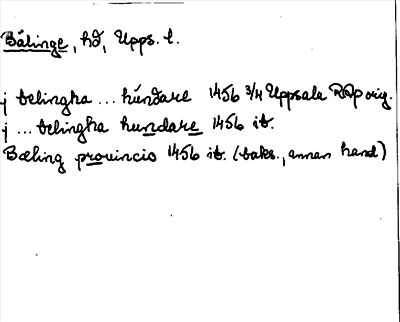 Bälinge, hd, Upps. l.
j belingha ... hundare 1456 3/4 Uppsala RAp orig.
j ... belingha hundare 1456 ib.
Bæling prouincio 1456 ib. (baks., annan hand)